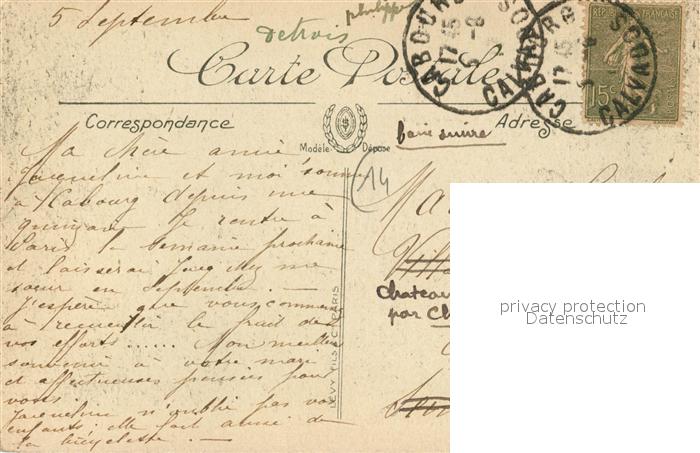 5 Septembre
philippe
detrois
CABOURG CALVADOS
17 45
CABOURG CALVADOS
17 45
RÉPUBLIQUE FRANÇAISE
15c
Carte Postale
Correspondance
Adresse
Modèle Déposé
faire suivre
(14
Ma chère amie
Jacqueline et moi sommes
à Cabourg depuis une
quinzaine Je rentre à
Paris la semaine prochaine
et laisserai Jacq chez ma
soeur en Septembre. —
J'espère que vous commencez
à recueillir le fruit de
vos efforts...... Mon meilleur
souvenir à votre mari
et affectueuses pensées pour
vous.
Jacqueline n'oublie pas vos
enfants; elle fait aussi de
la bicyclette. —
LEVY FILS & Cie PARIS
Ma
Villa
Chateau
par Ch
privacy protection
Datenschutz